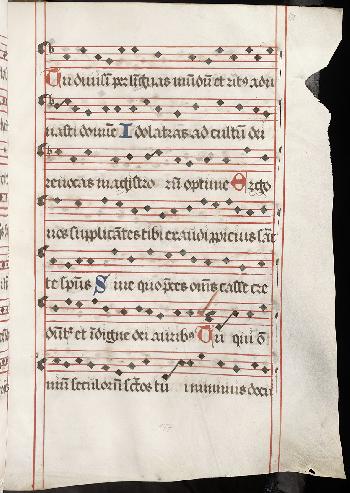 Tu divisū per līguas mūdū et ritꝯ adu
nasti domīe Idolatras ad cultū dei
revocas magistro rū optime Ergo
nos supplicātes tibi exaudi ppicius sāc
te spūs Sine quo preces oms casse cre
dūtˢ et īdigne dei auribꝯ Tu qui ō
niū seculorū sctos tu i numinis docu